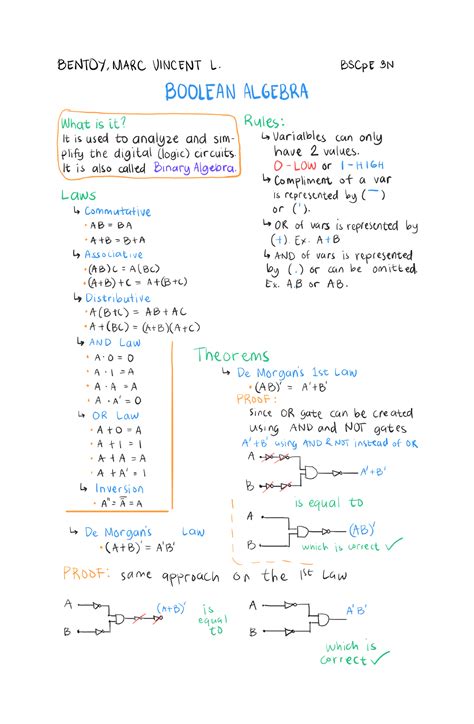 BENTOY, MARC VINCENT L. BSCpE 3N
BOOLEAN ALGEBRA
What is it?
It is used to analyze and sim-
plify the digital (logic) circuits.
It is also called Binary Algebra.
Rules:
↳ Varialbles can only
have 2 values.
0 - LOW or 1 - HIGH
↳ Compliment of a var
is represented by (‾)
or (').
↳ OR of vars is represented
by (+). Ex. A+B
↳ AND of vars is represented
by (.) or can be omitted.
Ex. A.B or AB.
Laws
↳ Commutative
• AB = BA
• A+B = B+A
↳ Associative
• (AB)C = A(BC)
• (A+B)+C = A+(B+C)
↳ Distributive
• A(B+C) = AB + AC
• A+(BC) = (A+B)(A+C)
↳ AND Law
• A · 0 = 0
• A · 1 = A
• A · A = A
• A · A' = 0
↳ OR Law
• A + 0 = A
• A + 1 = 1
• A + A = A
• A + A' = 1
↳ Inversion
• A" = A̿ = A
Theorems
↳ De Morgan's 1st Law
• (AB)' = A'+B'
PROOF:
Since OR gate can be created
using AND and NOT gates
A'+B' using AND & NOT instead of OR
A
A'+B'
B
is equal to
A
(AB)'
B
which is correct ✓
↳ De Morgan's Law
• (A+B)' = A'B'
PROOF: same approach on the 1st Law
A
(A+B)'
B
is
equal
to
A
A'B'
B
which is
correct ✓